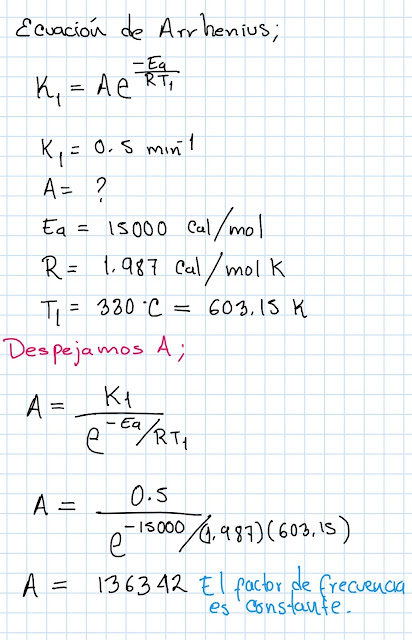 Ecuación de Arrhenius;
K₁ = Ae^(-Ea/RT₁)
K₁ = 0.5 min⁻¹
A = ?
Ea = 15000 Cal/mol
R = 1.987 Cal/mol K
T₁ = 330°C = 603.15 K
Despejamos A;
A = K₁ / e^(-Ea/RT₁)
A = 0.5 / e^(-15000/(1.987)(603.15))
A = 136342 El factor de frecuencia
es constante.